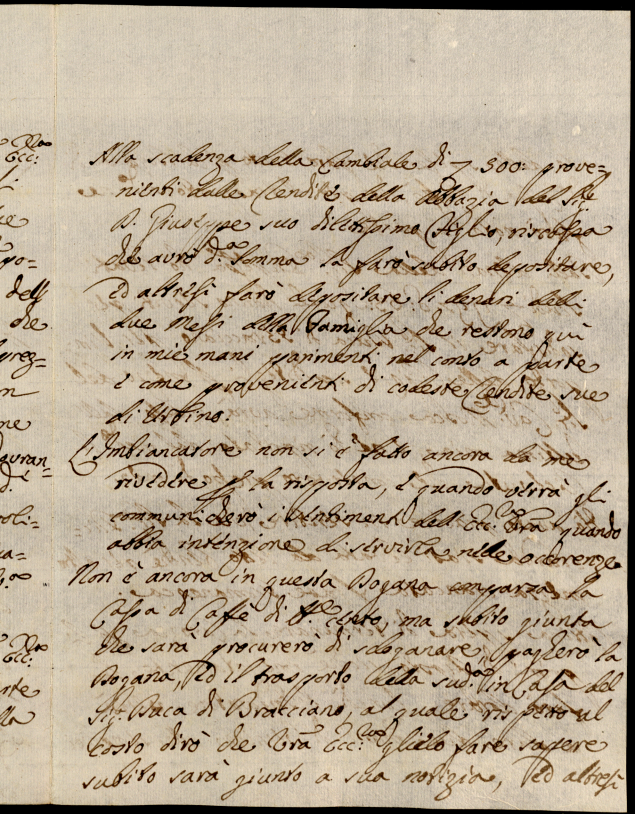 Alla scadenza della Cambiale di 300: prove=
nienti dalle Rendite della Abbazia del Sig.e
D. Giuseppe suo dilettissimo Figlio, riscossa
che avrò d.a Somma la farò subito depositare,
ed altresì farò depositare li denari delli
due Mesi della Famiglia che restono quì
in mie mani parimenti nel conto a parte
e come provenienti di codeste Rendite sue
di Urbino.
L'Imbiancatore non si è fatto ancora da me
rivedere p la risposta, e quando verrà gli
communicherò i sentimenti dell'Ecc: Vra quando
abbia intenzione di servirla nelle occorenze
Non è ancora in questa Dogana comparsa la
Cassa di Caffè di cento, ma subito giunta
che sarà procurerò di sdoganare, pagherò la
Dogana, ed il trasporto della sud.a in Casa del
Sig. Duca di Bracciano, al quale rispetto al
costo dirò che Vra Ecc: glielo fare sapere
subito sarà giunto a sua notizia, Ed altresì
Ecc:
po=
dell
che
preg=
ne
guran=
poli=
ua=
Ecc:
rte
lla